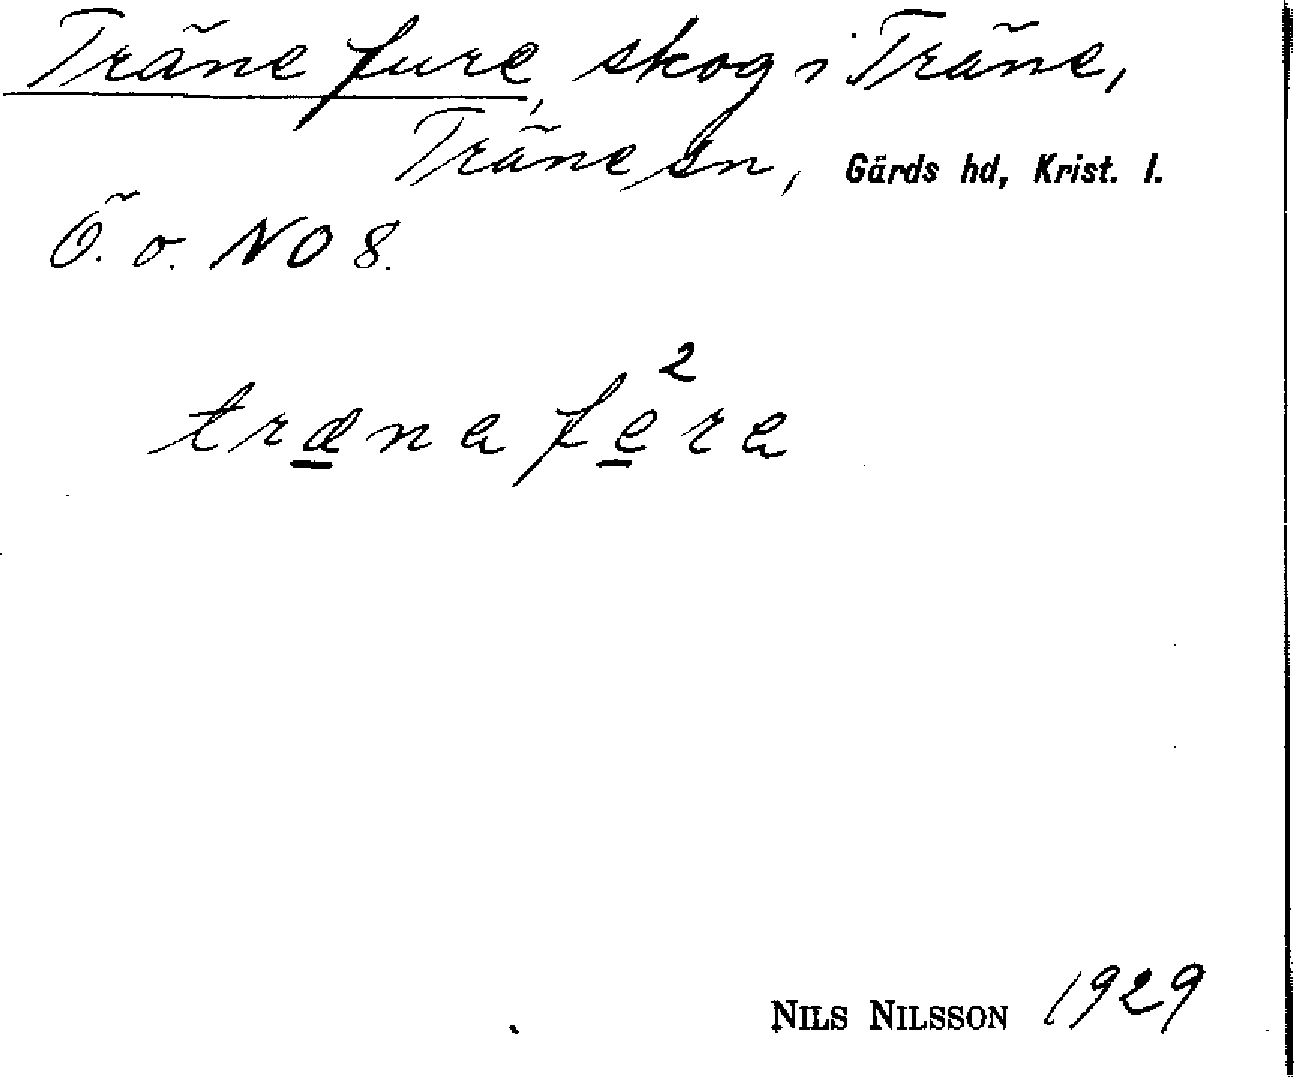 Träne fure, skog i Träne,
Träne sn, Gärds hd, Krist. l.
Ö. o. NO 8.
2
træna fera
NILS NILSSON 1929